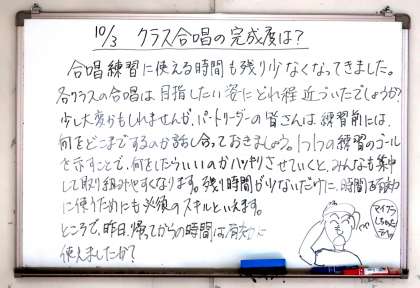 10/3 クラス合唱の完成度は?
合唱練習に使える時間も残り少なくなってきました。
各クラスの合唱は目指したい姿にどれ程近づいたでしょうか?
少し大変かもしれませんが、パートリーダーの皆さんは、練習前には、
何をどこまでするのか話し合っておきましょう。1つ1つの練習のゴール
を示すことで、何をしたらいいのかハッキリさせていくと、みんなも集中
して取り組みやすくなります。残り時間が少ないだけに、時間を有効
に使うためにも必須のスキルといえます。
ところで、昨日、帰ってからの時間は有効に
使えましたか?
マイクラ
しちゃった